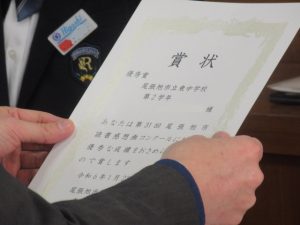 賞状
優秀賞
尾張旭市立東中学校
第2学年
殿
あなたは第31回尾張旭市
読書感想画コンクールに
優秀な成績をおさめ
ので賞します
令和6年1月
尾張旭
R